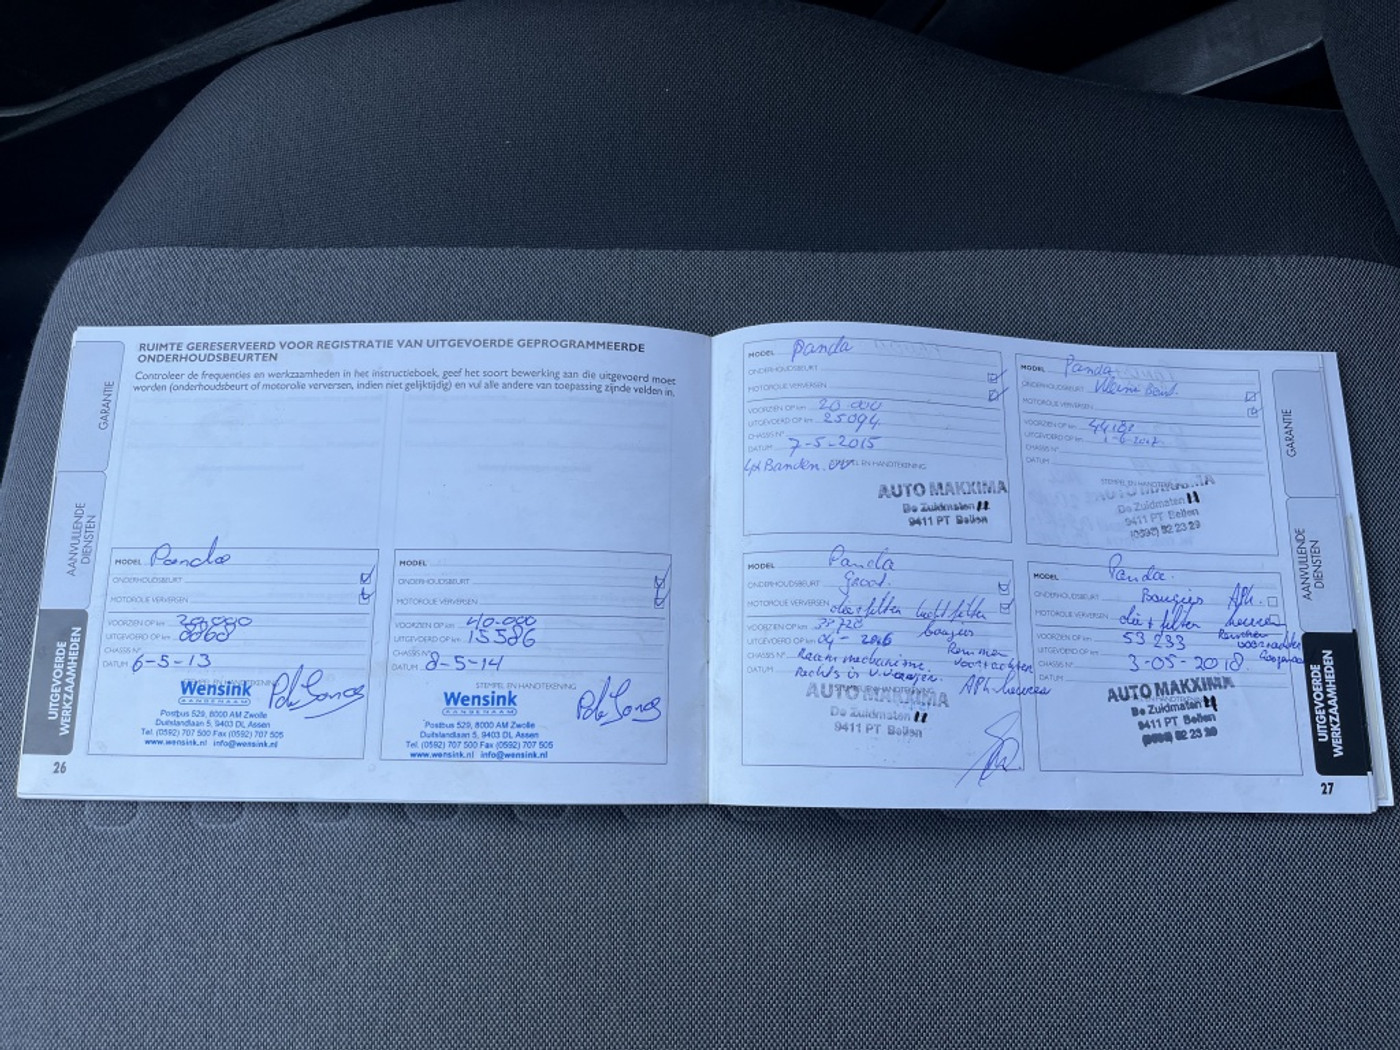 RUIMTE GERESERVEERD VOOR REGISTRATIE VAN UITGEVOERDE GEPROGRAMMEERDE
ONDERHOUDSBEURTEN
Controleer de frequenties en werkzaamheden in het instructieboek, geef het soort bewerking aan die uitgevoerd moet
worden (onderhoudsbeurt of motorolie verversen, indien niet gelijktijdig) en vul alle andere van toepassing zijnde velden in.
GARANTIE
AANVULLENDE
DIENSTEN
UITGEVOERDE
WERKZAAMHEDEN
MODEL Panda
ONDERHOUDSBEURT
MOTOROLIE VERVERSEN
VOORZIEN OP km 20.000
UITGEVOERD OP km
CHASSIS N°
DATUM 6-5-13
STEMPEL EN HANDTEKENING
Wensink
AANGENAAM
Postbus 529, 8000 AM Zwolle
Duitslandlaan 5, 9403 DL Assen
Tel. (0592) 707 500 Fax (0592) 707 505
www.wensink.nl info@wensink.nl
MODEL
ONDERHOUDSBEURT
MOTOROLIE VERVERSEN
VOORZIEN OP km 40.000
UITGEVOERD OP km 15586
CHASSIS N°
DATUM 8-5-14
STEMPEL EN HANDTEKENING
Wensink
AANGENAAM
Postbus 529, 8000 AM Zwolle
Duitslandlaan 5, 9403 DL Assen
Tel. (0592) 707 500 Fax (0592) 707 505
www.wensink.nl info@wensink.nl
26
MODEL Panda
ONDERHOUDSBEURT
MOTOROLIE VERVERSEN
VOORZIEN OP km 20.000
UITGEVOERD OP km 25094
CHASSIS N°
DATUM 7-5-2015
4x Banden
STEMPEL EN HANDTEKENING
AUTO MAKXIMA
De Zuidmaten 11
9411 PT Beilen
MODEL Panda
ONDERHOUDSBEURT Kleine Beurt
MOTOROLIE VERVERSEN
VOORZIEN OP km
UITGEVOERD OP km
CHASSIS N°
DATUM
STEMPEL EN HANDTEKENING
AUTO MAKXIMA
De Zuidmaten 11
9411 PT Beilen
(0593) 52 23 29
MODEL Panda
ONDERHOUDSBEURT Groot
MOTOROLIE VERVERSEN olie+filter luchtfilter
VOORZIEN OP km bougies
UITGEVOERD OP km 04-2016 Remmen
CHASSIS N° Raam mechanisme voor+achter
DATUM Rechts
APK
AUTO MAKXIMA
De Zuidmaten 11
9411 PT Beilen
MODEL Panda
ONDERHOUDSBEURT Bougies APK
MOTOROLIE VERVERSEN olie+filter
VOORZIEN OP km 53233 Remmen
UITGEVOERD OP km voor+achter
CHASSIS N° 3-05-2018
DATUM
AUTO MAKXIMA
De Zuidmaten 11
9411 PT Beilen
(0593) 52 23 29
GARANTIE
AANVULLENDE
DIENSTEN
UITGEVOERDE
WERKZAAMHEDEN
27